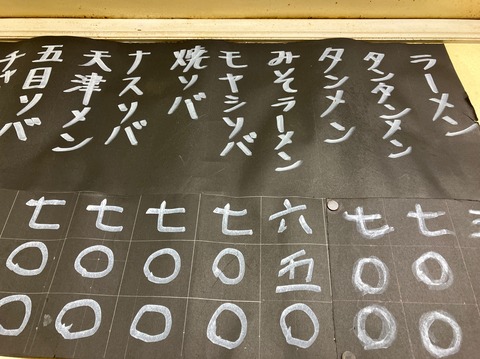 ラーメン
タンタンメン
タンメン
みそラーメン
モヤシソバ
焼ソバ
ナスソバ
天津メン
五目ソバ
七〇〇
七〇〇
六五〇
七〇〇
七〇〇
七〇〇
七〇〇